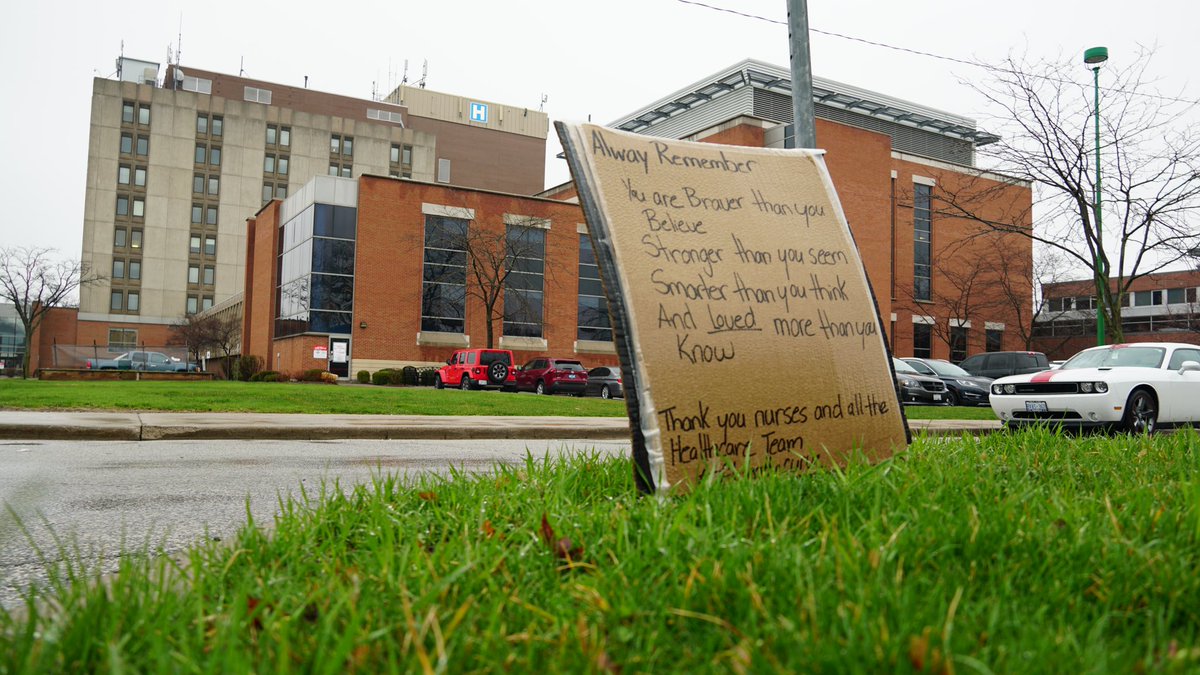 H
Alway Remember
You are Braver than you
Believe
Stronger than you seem
Smarter than you think
And Loved more than you
Know
Thank you nurses and all the
Healthcare Team